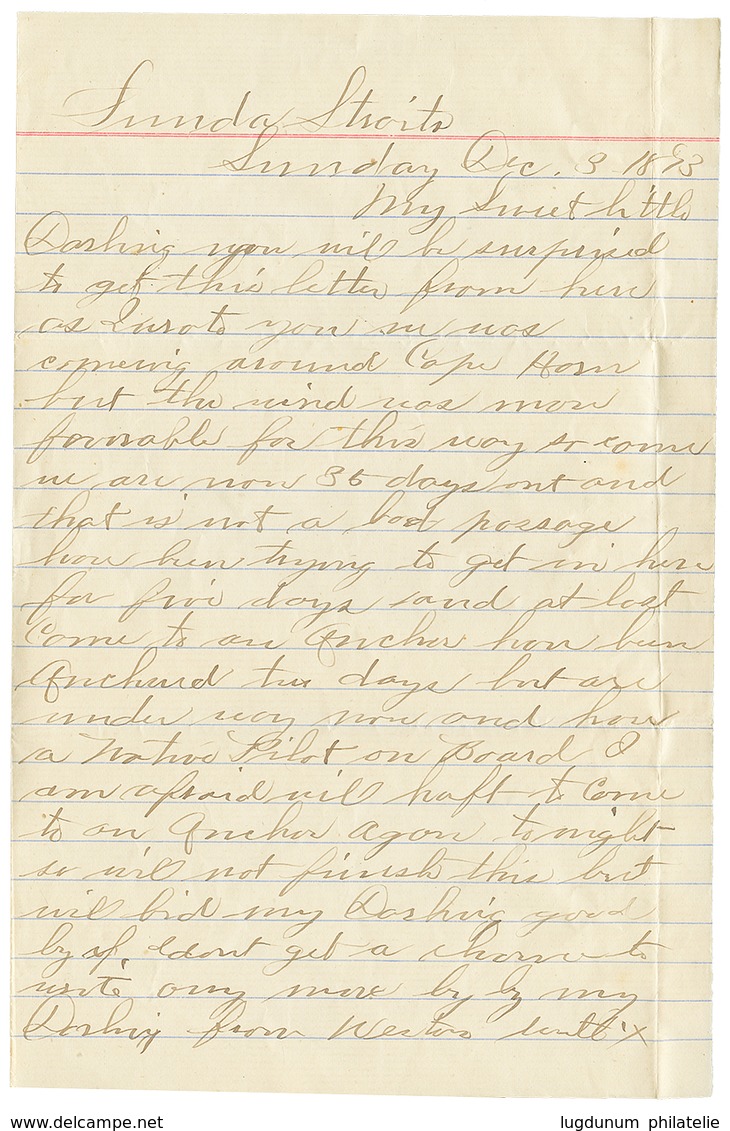 Sunda Straits
Sunday Dec. 3 1893
My Sweet little
Darling you will be surprised
to get this letter from here
as I wrote you we was
comeing around Cape Horn
but the wind was more
favorable for this way so come
we are now 36 days out and
that is not a bad passage
have ben trying to get in here
for five days and at last
Come to an Anchor have ben
Anchored two days but are
under way now and have
a Native Pilot on Board I
am afraid will haft to Come
to an Anchor agan to night
so will not finish this but
will bid my Darling good
by if I dont get a chance to
write any more by by my
Darling from
www.delcampe.net
lugdunum philatelie